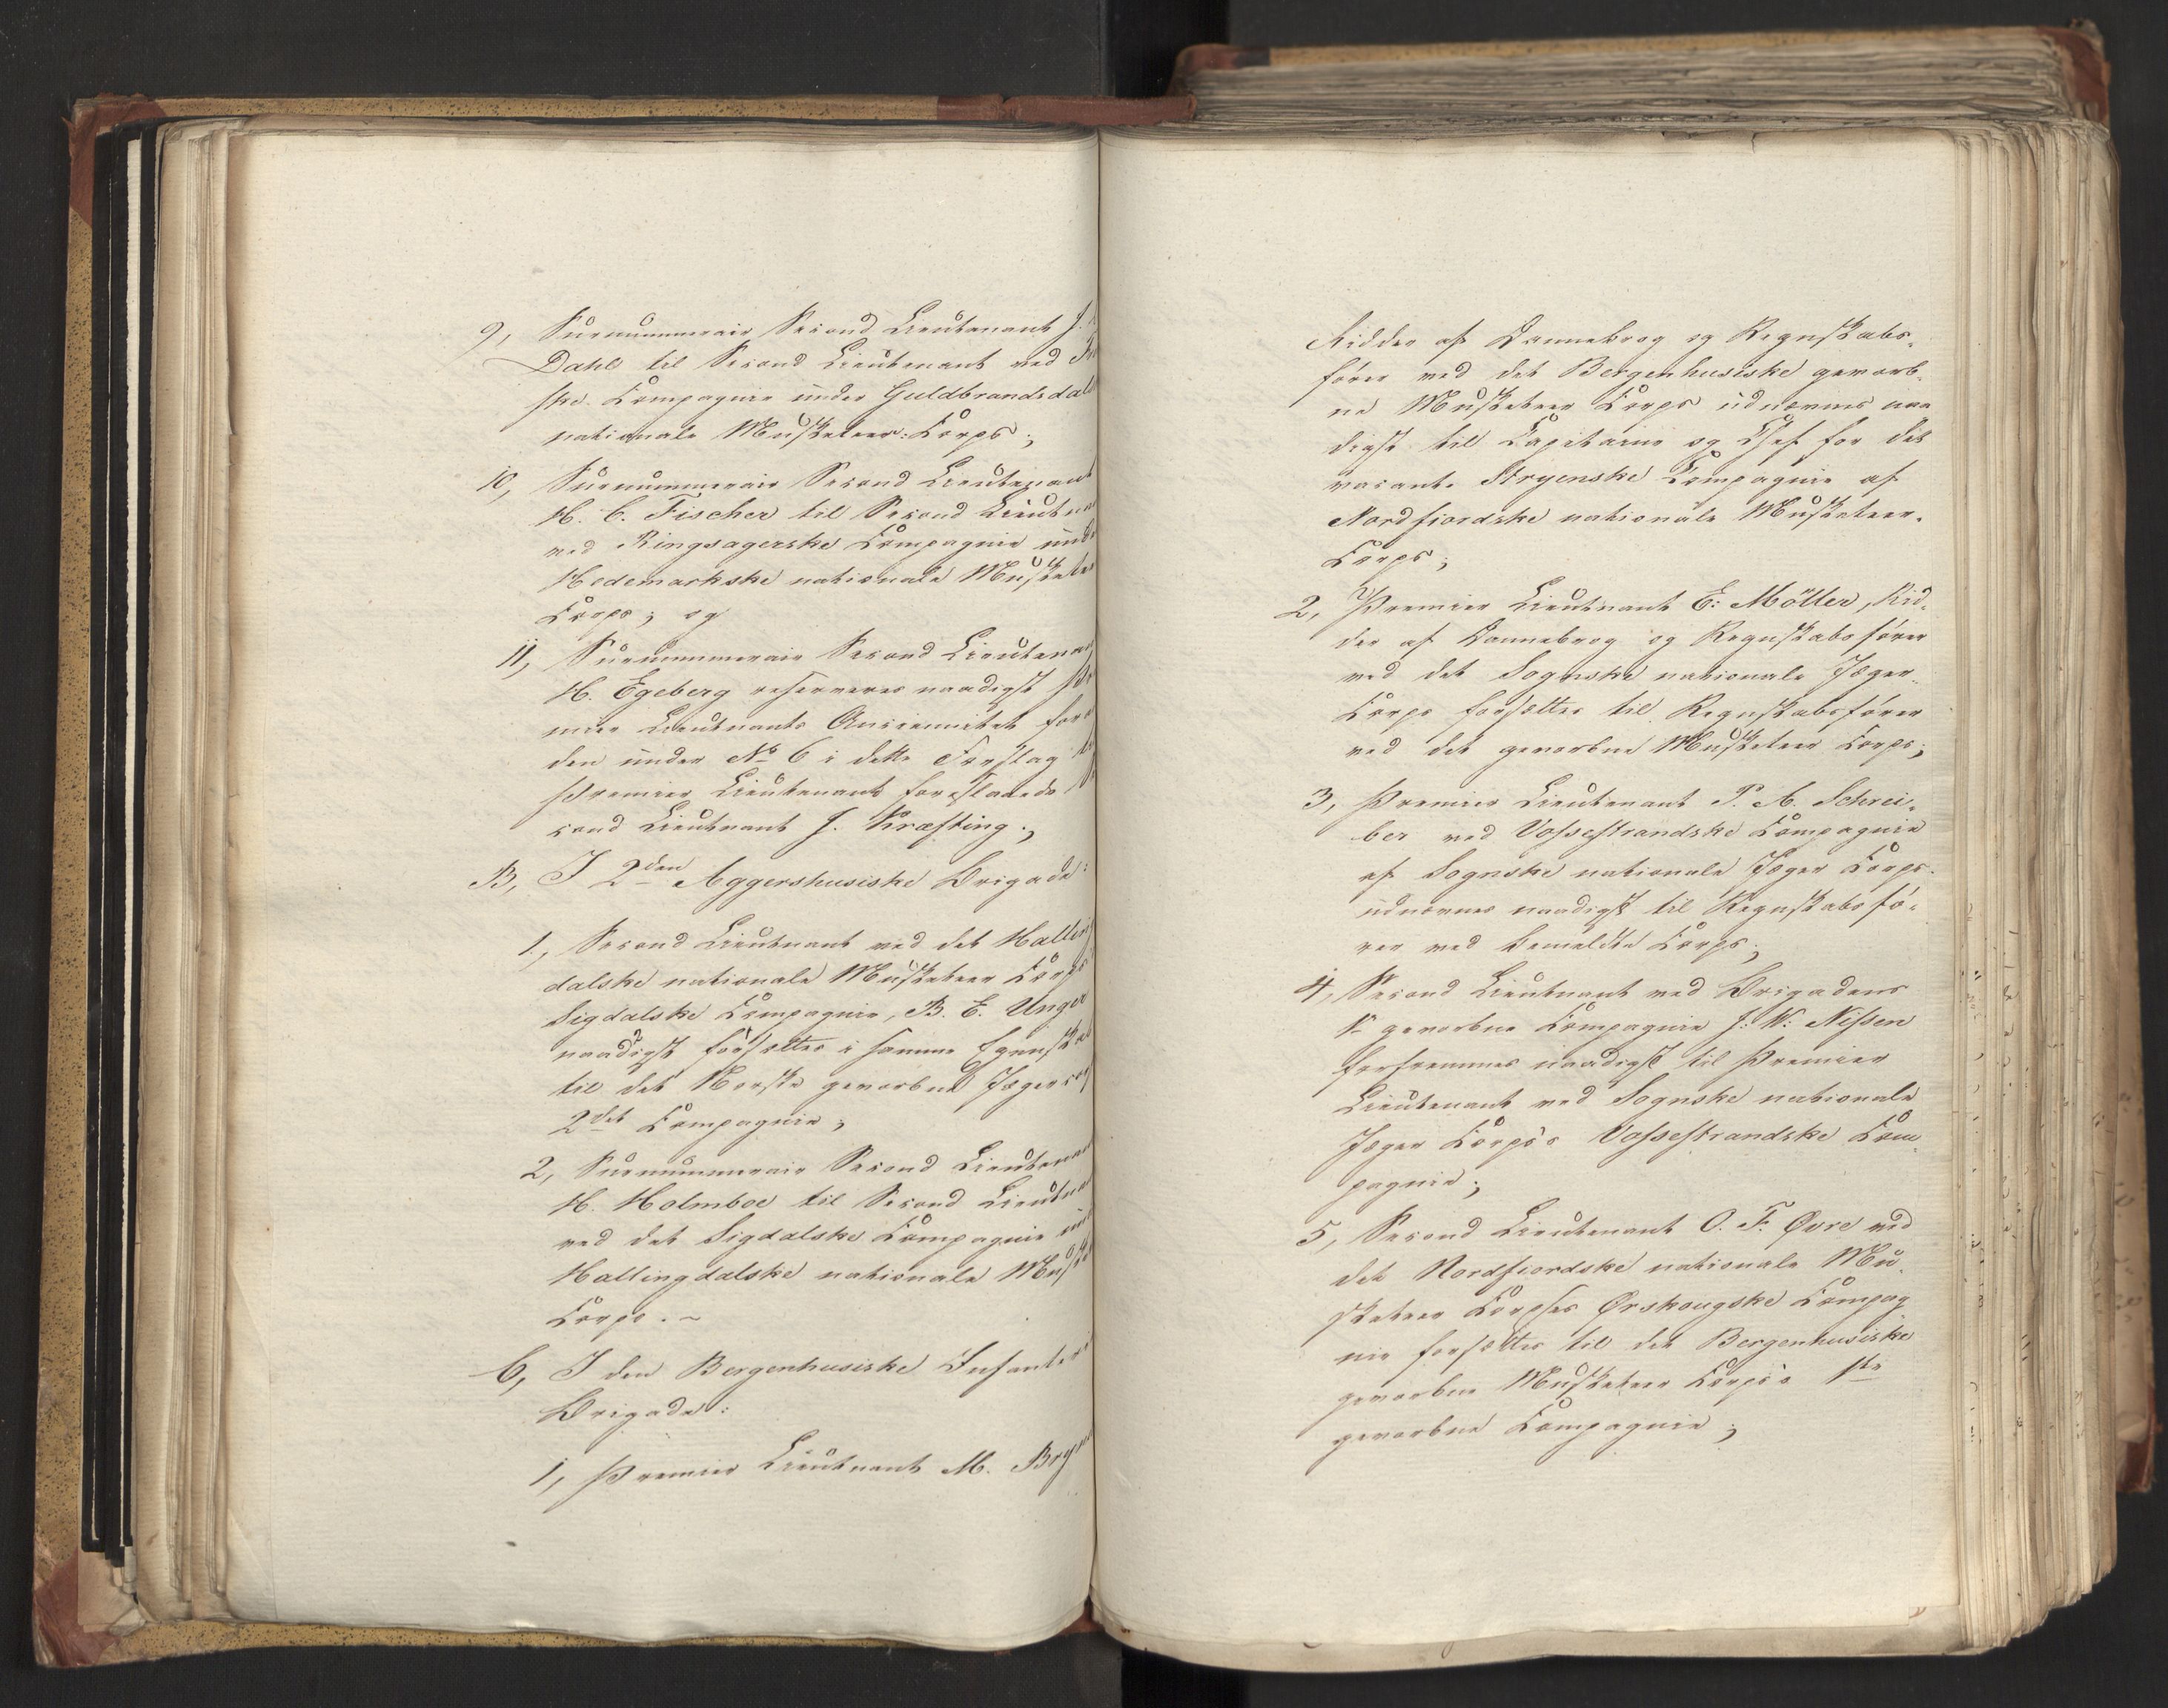 9, Surnummerair Second Lieutenant J.
Dahl til Second Lieutenant ved
ske Compagnie under Guldbrandsdals
nationale Musketeer-Corps;
10, Surnummerair Second Lieutenant
H. C. Fischer til Second Lieutnant
ved Ringsagerske Compagnie under
Hedemarkske nationale Musketeer
Corps; og
11, Surnummerair Second Lieutenant
H. Egeberg reserveres naadigst Pre
mier Lieutnants Anciennitet foran
den under No 6 i dette Forslag til
Premier Lieutenant foreslaaede Se
cond Lieutnant J. Kræfting;
B, I 2den Aggershusiske Brigade:
1, Second Lieutnant ved det Halling
dalske nationale Musketeer Corps's
Sigdalske Compagnie, B. E. Unger
naadigst forsættes i samme Egenskab
til det Norske gevorbne Jægercorps
2det Compagnie;
2, Surnummerair Second Lieutenant
H. Holmboe til Second Lieutnant
ved det Sigdalske Compagnie under
Hallingdalske nationale Musketeer
Corps. ~
C, I den Bergenhusiske Infanterie
Brigade:
1, Premier Lieutnant M.
Ridder af Dannebrog og Regnskabs-
fører ved det Bergenhusiske gevorb-
ne Musketeer Corps udnævnes naa
digst til Capitaine og Chef for det
vacante Stryenske Compagnie af
Nordfiordske nationale Musketeer-
Corps;
2, Premier Lieutnant E: Möller, Rid-
der af Dannebrog og Regnskabsfører
ved det Sognske nationale Jæger-
Corps forsættes til Regnskabsfører
ved det gevorbne Musketeer Corps;
3, Premier Lieutenant P. A. Schrei-
ber ved Vossestrandske Compagnie
af Sognske nationale Jæger Corps.
udnævnes naadigst til Regnskabsfø-
rer ved bemeldte Corps;
4, Second Lieutnant ved Brigadens
1te gevorbne Compagnie J: W: Nissen
forfremmes naadigst til Premier
Lieutenant ved Sognske nationale
Jæger Corps's Vossestrandske Com-
pagnie;
5, Second Lieutenant O. F. Øvre ved
det Nordfiordske nationale Mu-
sketeer Corpses Ørskougske Compag
nie forsættes til det Bergenhusiske
gevorbne Musketeer Corps's 1ste
gevorbne Compagnie;